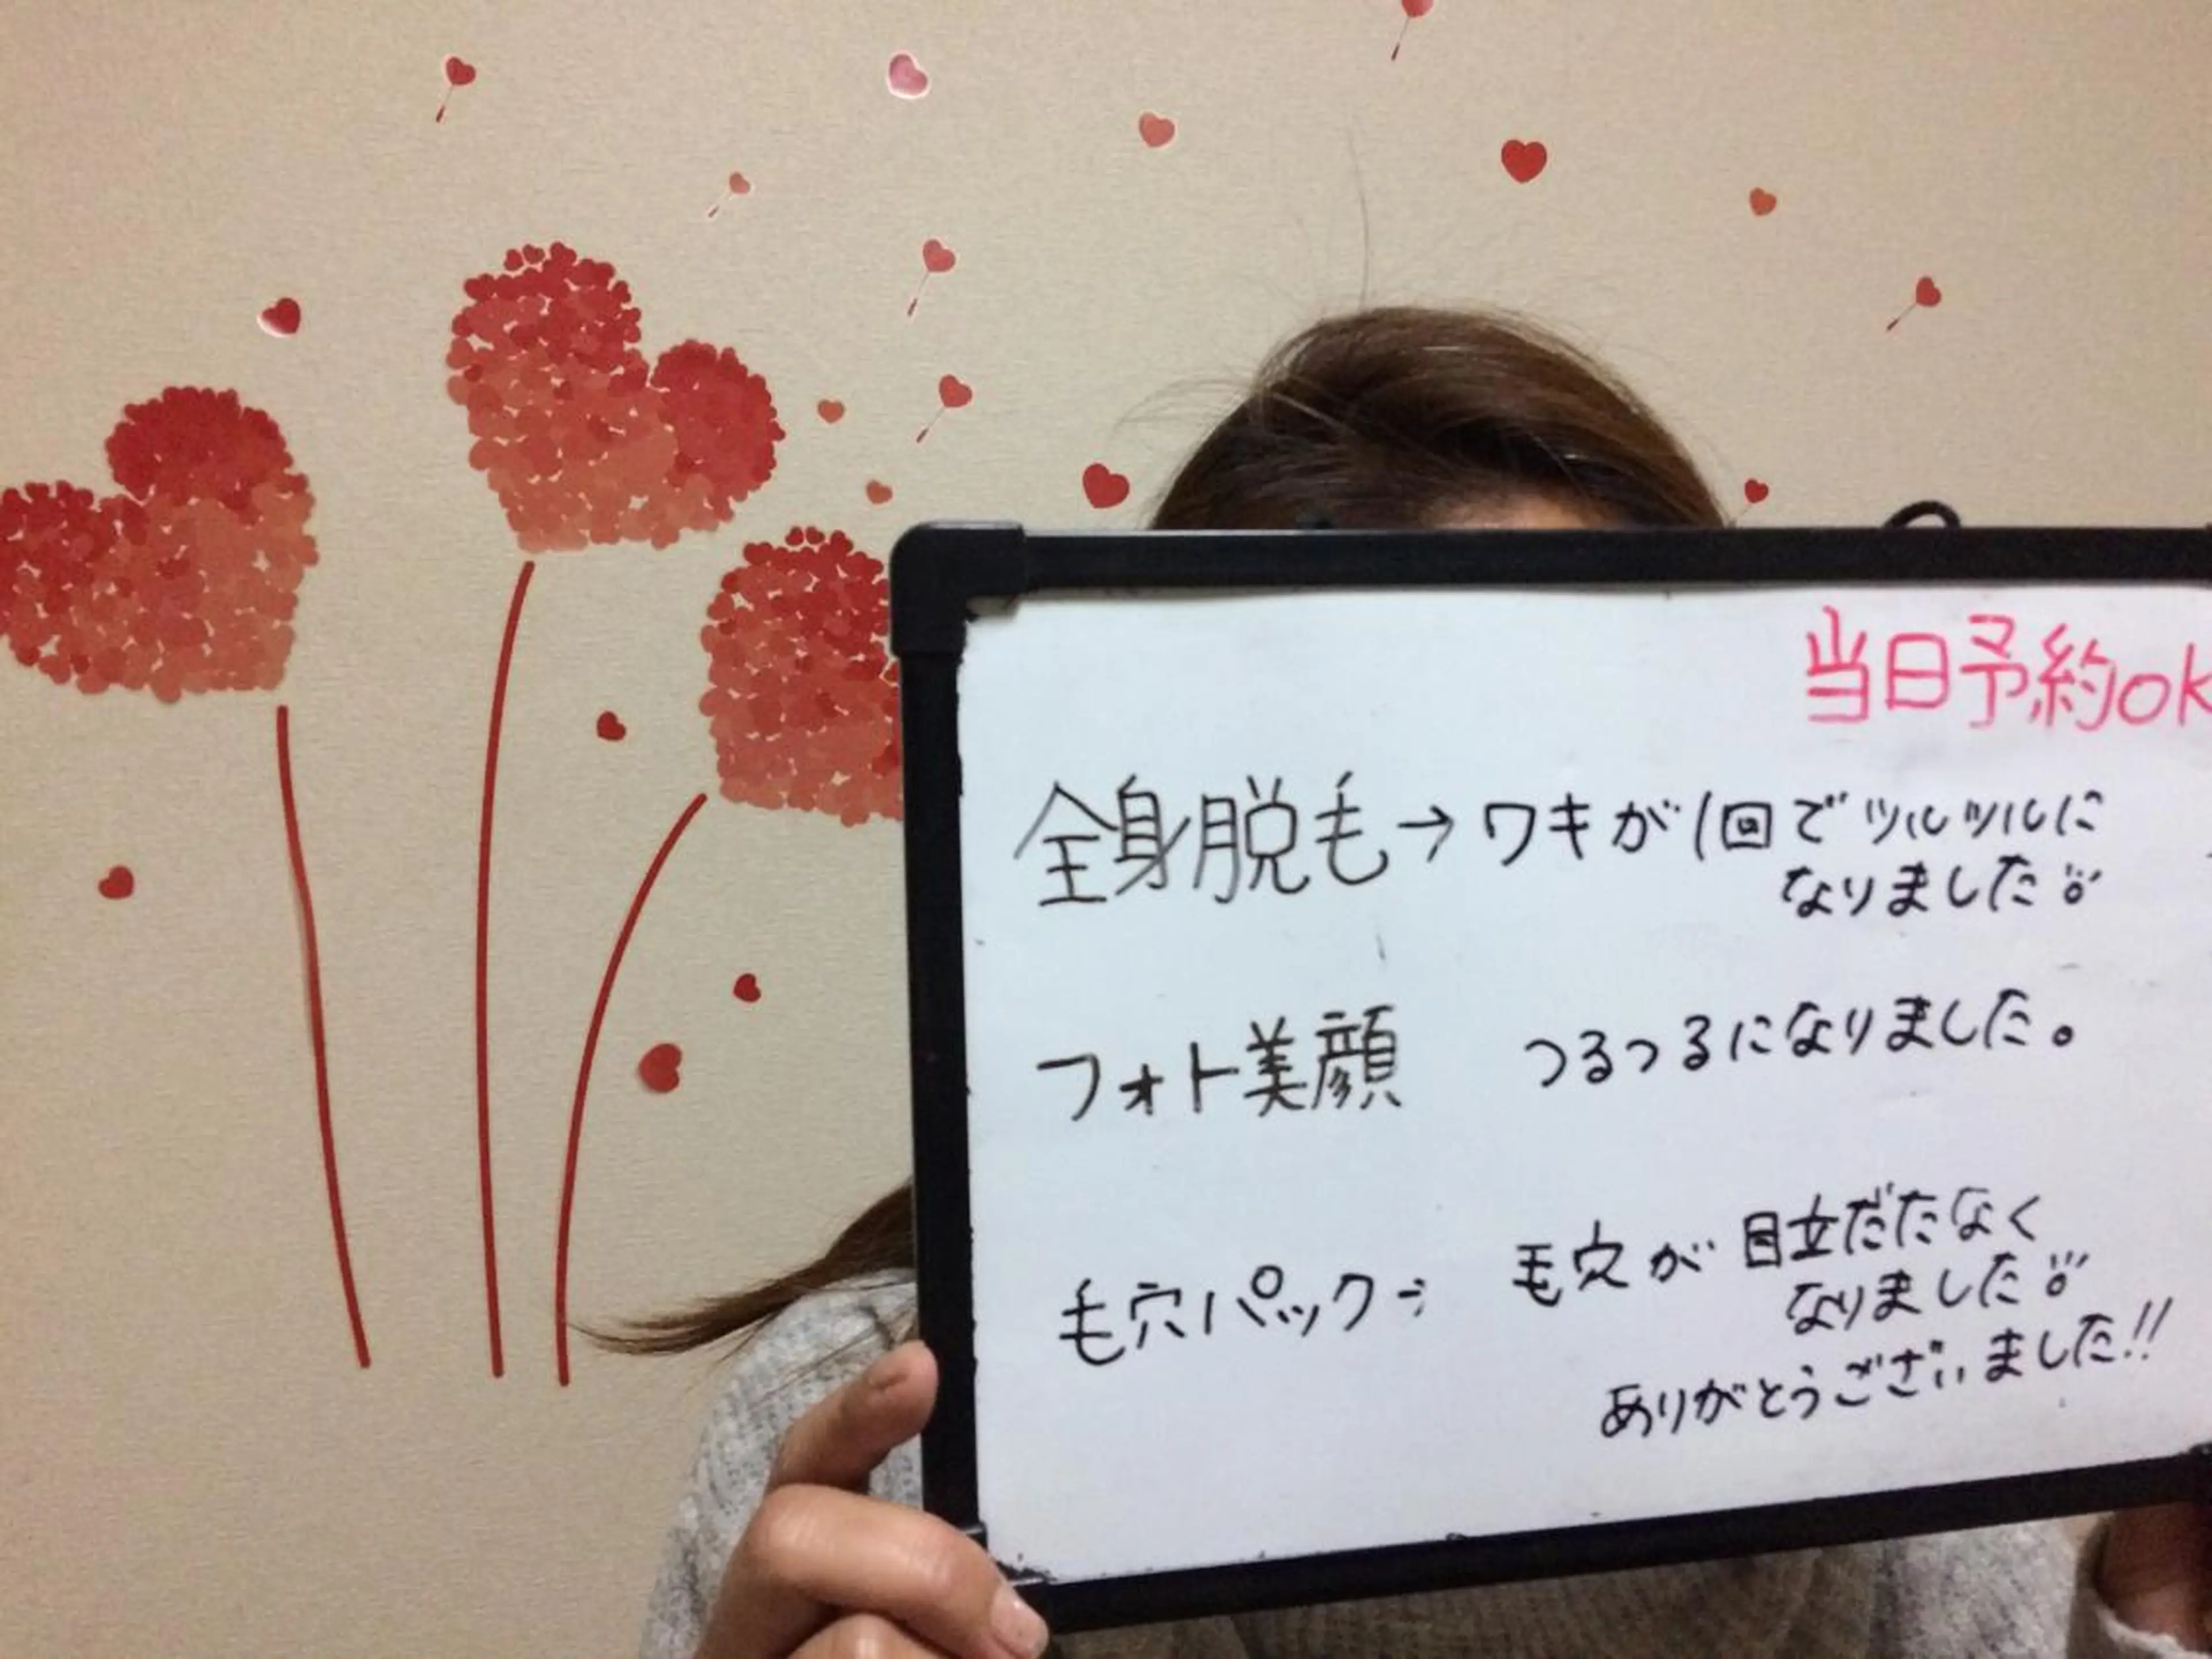 当日予約ok
全身脱毛→ワキが1回でツルツルに
なりました
フォト美顔 つるつるになりました。
毛穴パック⇒ 毛穴が目立だたなく
なりました
ありがとうございました!!